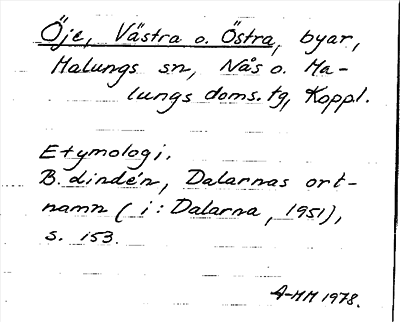 Öje, Västra o. Östra, byar,
Malungs sn, Nås o. Ma-
lungs doms. tg, Koppl.
Etymologi.
B. Lindén, Dalarnas ort-
namn (i: Dalarna, 1951),
s. 153.
A-MM 1978.